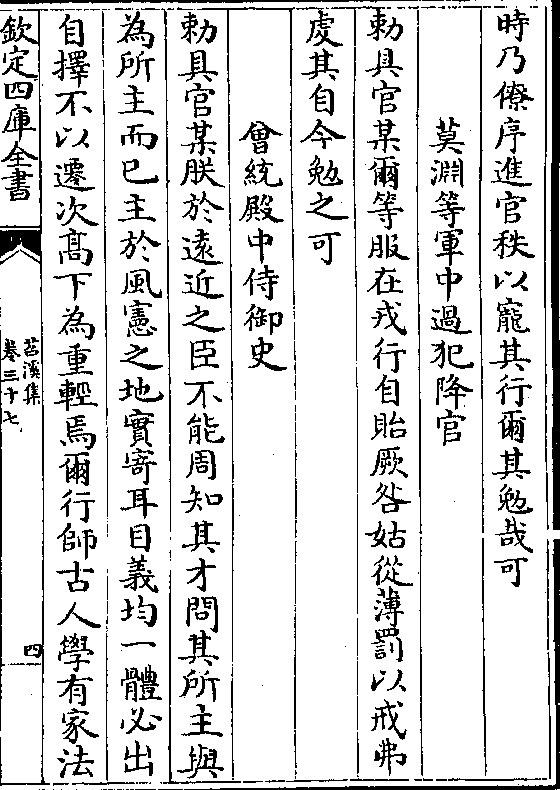 時乃僚序進官秩以寵其行爾其勉哉可
莫淵等軍中過犯降官
勅具官某爾等服在戎行自貽厥咎姑從薄罰以戒弗
虔其自今勉之可
曾統殿中侍御史
勅具官某朕於遠近之臣不能周知其才問其所主與
為所主而已主於風憲之地實寄耳目義均一體必出
自擇不以遷次髙下為重輕焉爾行師古人學有家法
欽定四庫全書
苕溪集
卷三十七
四